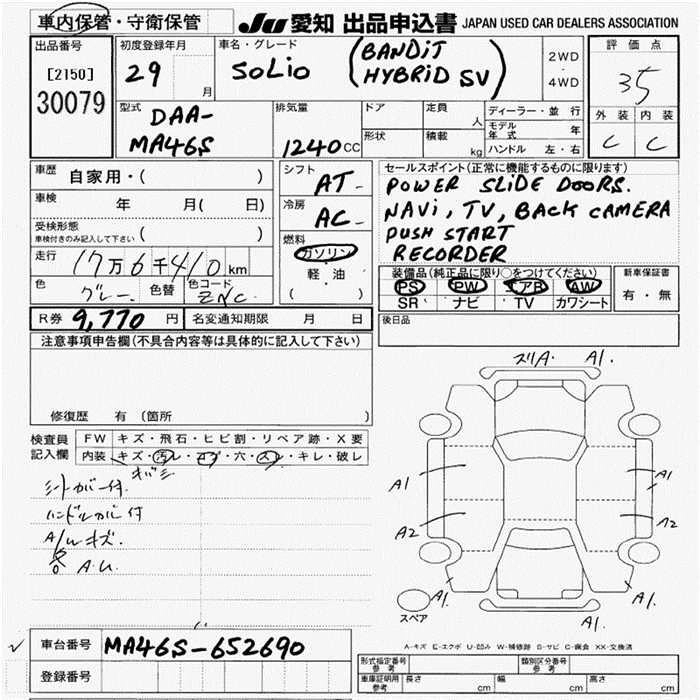 車内保管・守衛保管
JU 愛知 出品申込書 JAPAN USED CAR DEALERS ASSOCIATION
出品番号
[2150]
30079
初度登録年月
29 月
車名・グレード
SOLIO (BANDIT HYBRID SV)
2WD
・
4WD
評価点
35
外装 内装
C C
型式
DAA-
MA46S
排気量
1240 CC
ドア
定員
人
形状
積載
kg
ディーラー・並行
モデル年式 年
ハンドル 左・右
車歴
自家用・( )
車検 年 月( 日)
受検形態
車検付きのみ記入して下さい ( )
走行 17万6千410km
色 グレー 色替 色コード
R券 9,770 円 名変通知期限 月 日
シフト
AT
冷房
AC
燃料
ガソリン
軽油
( )
セールスポイント(正常に機能するものに限ります)
POWER SLIDE DOORS.
NAVI, TV, BACK CAMERA
PUSH START
RECORDER
装備品(純正品に限り○をつけてください)
PS PW エアB AW
SR ナビ TV カワシート
新車保証書
有・無
後日品
注意事項申告欄(不具合内容等は具体的に記入して下さい)
修復歴 有 (箇所 )
検査員
記入欄
FW キズ・飛石・ヒビ割・リペア跡・X要
内装 キズ・汚レ・コゲ・穴・スレ・キレ・破レ
シートカバー付
ハンドルカバー付
A/Wキズ.
A.U.
A1.
A1
A1
A2
A2
A1.
A1.
A1.
スペア
A-キズ E-エクボ U-凹み W-補修跡 S-サビ C-腐食 XX-交換済
車台番号 MA46S-652690
登録番号
形式指定番号
参考
類別区分番号
参考
車庫証明用
参考
長さ cm 幅 cm 高さ cm